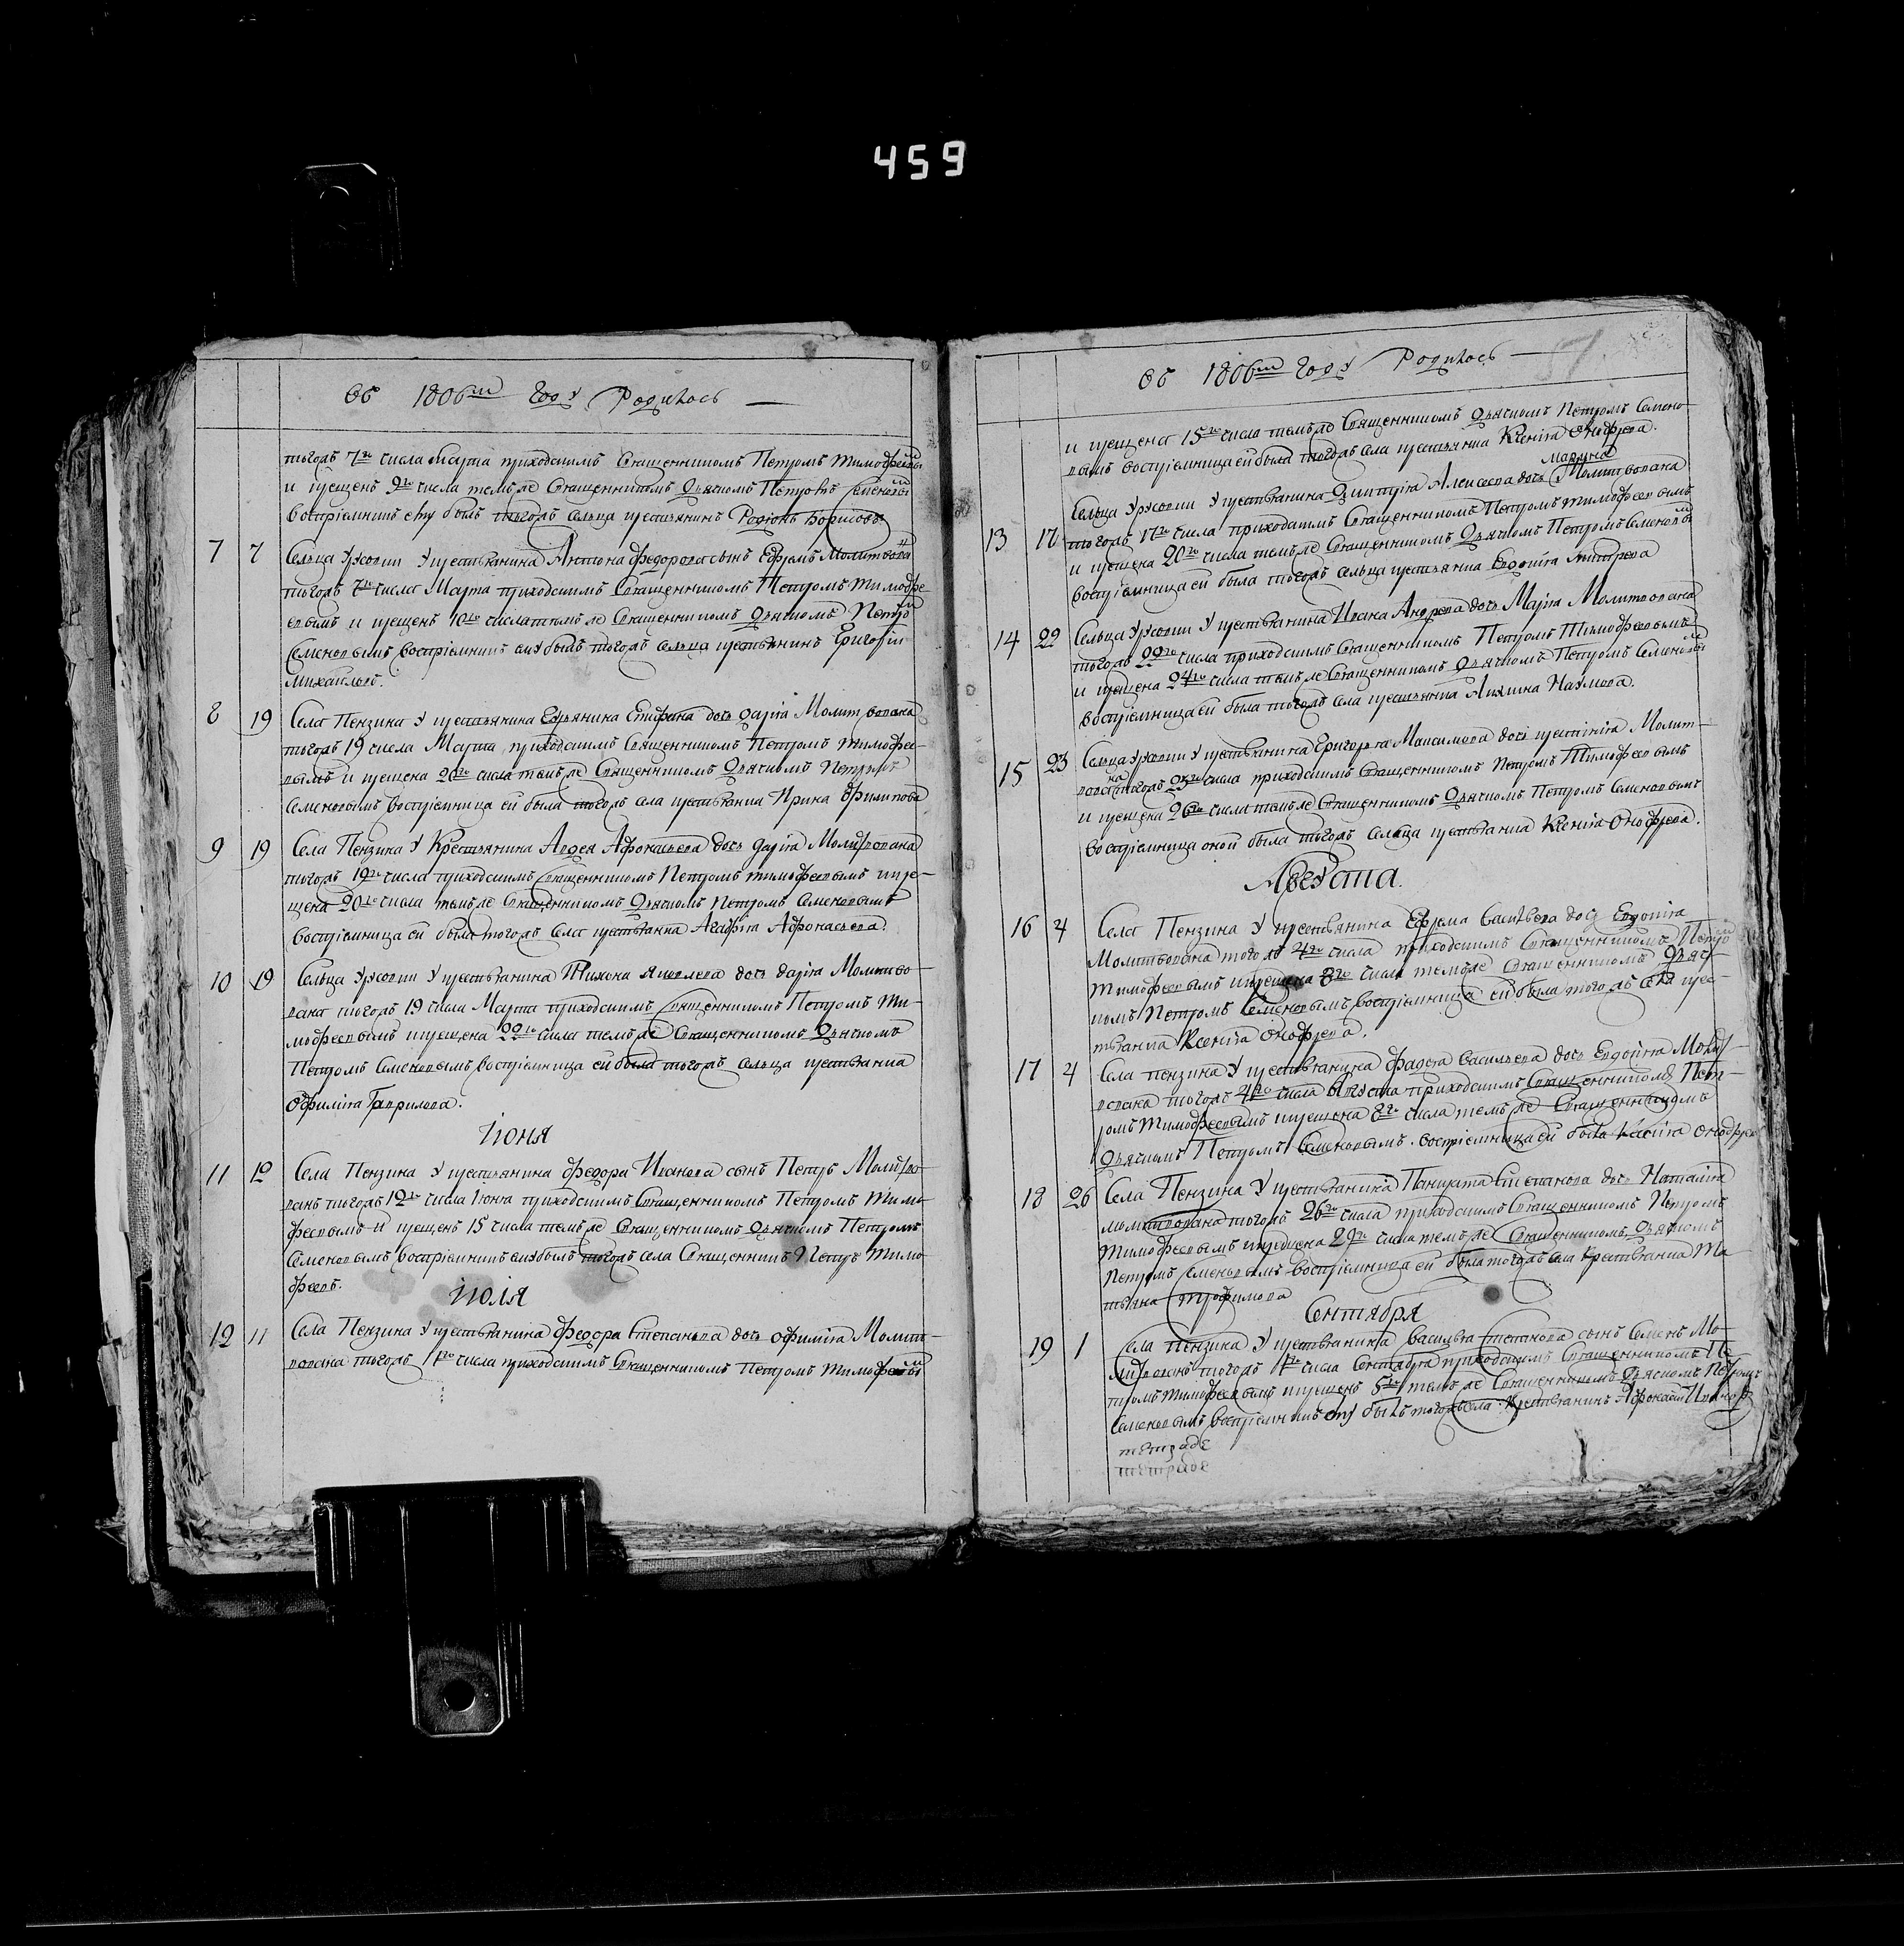 459
въ 1806м году Родилось —
тогожъ 7го числа Марта приходскимъ Священникомъ Петромъ Тимофеевым
и крещенъ 9го числа темъ же Священникомъ Дьячкомъ Петромъ Семеновым
воспріемникъ ему былъ тогожъ сельца крестьянинъ Родіонъ Борисовъ
7 7 Сельца Урусовки у крестьянина Антона Федорова сынъ Ефремъ Молитвован
тогожъ 7го числа Марта приходскимъ Священникомъ Петромъ Тимофе-
евымъ и крещенъ 10го числа темъ же Священникомъ Дьячкомъ Петром
Семеновымъ воспріемникъ ему былъ тогожъ сельца крестьянинъ Григорій
Михайловъ.
8 19 Села Пензина у крестьянина Емельянина дочь Дарія Молитвована
тогожъ 19 числа Марта приходскимъ Священникомъ Петромъ Тимофее-
вымъ и крещена 20го числа темъ же Священникомъ Дьячкомъ Петромъ
Семеновымъ воспріемница ей была тогожъ села крестьянка Ирина Филипова
9 19 Села Пензина у Крестьянина Авдея Афонасьева дочь Дарія Молитвована
тогожъ 19го числа приходскимъ Священникомъ Петромъ Тимофеевымъ икре-
щена 20го числа темъ же Священникомъ Дьячкомъ Петромъ Семеновымъ
воспріемница ей была тогожъ села крестьянка Агафія Афонасьева.
10 19 Сельца Урусовки у крестьянина Тихона Яковлева дочь Дарія Молитво-
вана тогожъ 19 числа Марта приходскимъ Священникомъ Петромъ Ти-
мофеевымъ икрещена 22го числа темъ же Священникомъ Дьячкомъ
Петромъ Семеновымъ воспріемница ей была тогожъ сельца крестьянка
Офимія Гаврилова.
Іюня
11 12 Села Пензина у крестьянина Федора Иванова сынъ Петръ Молитво-
ванъ тогожъ 12го числа Іюня приходскимъ Священникомъ Петромъ Тимо-
феевымъ и крещенъ 15 числа темъ же Священникомъ Дьячкомъ Петромъ
Семеновымъ воспріемникъ ему былъ тогожъ села Священникъ Петръ Тимо-
феевъ.
Іюлія
12 11 Села Пензина у крестьянина Федора Степанова дочь Офимія Молит-
вована тогожъ 11го числа приходскимъ Священникомъ Петромъ Тимофеевым
въ 1806м году Родилось —
и крещена 15го числа темъ же Священникомъ Дьячкомъ Петромъ Семено-
вымъ воспріемница ей была тогожъ села крестьянка Ксенія Онофрева.
Марина
13 17 Сельца Урусовки у крестьянина Димитрія Алексеева дочь Молитвована
тогожъ 17го числа приходскимъ Священникомъ Петромъ Тимофеевымъ
и крещена 20го числа темъ же Священникомъ Дьячкомъ Петромъ Семеновым
воспріемница ей была тогожъ сельца крестьянка Евдокія
14 22 Сельца Урусовки у крестьянина Ивана Андреева дочь Марія Молитвована
тогожъ 22го числа приходскимъ Священникомъ Петромъ Тимофеевымъ
и крещена 24го числа темъ же Священникомъ Дьячкомъ Петромъ Семеновым
воспріемница ей была тогожъ села крестьянка Акилина Наумова.
15 23 Сельца Урусовки у крестьянина Григорья Максимова дочь Христинія Молит-
вована тогожъ 23го числа приходскимъ Священникомъ Петромъ Тимофеевымъ
и крещена 26го числа темъ же Священникомъ Дьячкомъ Петромъ Семеновымъ
воспріемница оной была тогожъ сельца крестьянка Ксенія Онофрева.
Августа.
16 4 Села Пензина у крестьянина Ефрема Савельева дочь Евдокія
Молитвована тогожъ 4го числа приходскимъ Священникомъ Петром
Тимофеевымъ икрещена 8го числа темъ же Священникомъ Дьяч-
комъ Петромъ Семеновымъ воспріемница ей была тогожъ села крес-
тьянка Ксенія Онофрева.
17 4 Села Пензина у крестьянина Фадея Васильева дочь Евдокія Молит-
вована тогожъ 4го числа Августа приходскимъ Священникомъ Пет-
ромъ Тимофеевымъ икрещена 8го числа темъ же Священникомъ
Дьячкомъ Петромъ Семеновымъ. воспріемница ей была Ксенія Онофрева
18 26 Села Пензина у крестьянина Панкрата Степанова дочь Наталія
молитвована тогожъ 26го числа приходскимъ Священникомъ Петромъ
Тимофеевымъ икрещена 29го числа темъ же Священникомъ Дьячкомъ
Петромъ Семеновымъ воспріемница ей была тогожъ села Крестьянка Та-
тьяна Трофимова
Сентября
19 1 Села Пензина у крестьянина Василья Степанова сынъ Семенъ Мо-
литвованъ тогожъ 1го числа Сентября приходскимъ Священникомъ Пе-
тромъ Тимофеевымъ икрещенъ 5го темъ же Священникомъ Дьячкомъ Петромъ
Семеновымъ воспріемникъ ему былъ тогожъ села Крестьянинъ Афонасій Ивановъ